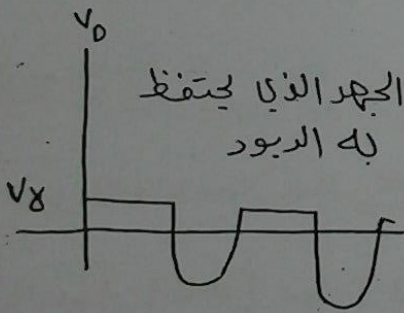 V_D
الجهد الذي يحتفظ
به الديود
Vγ